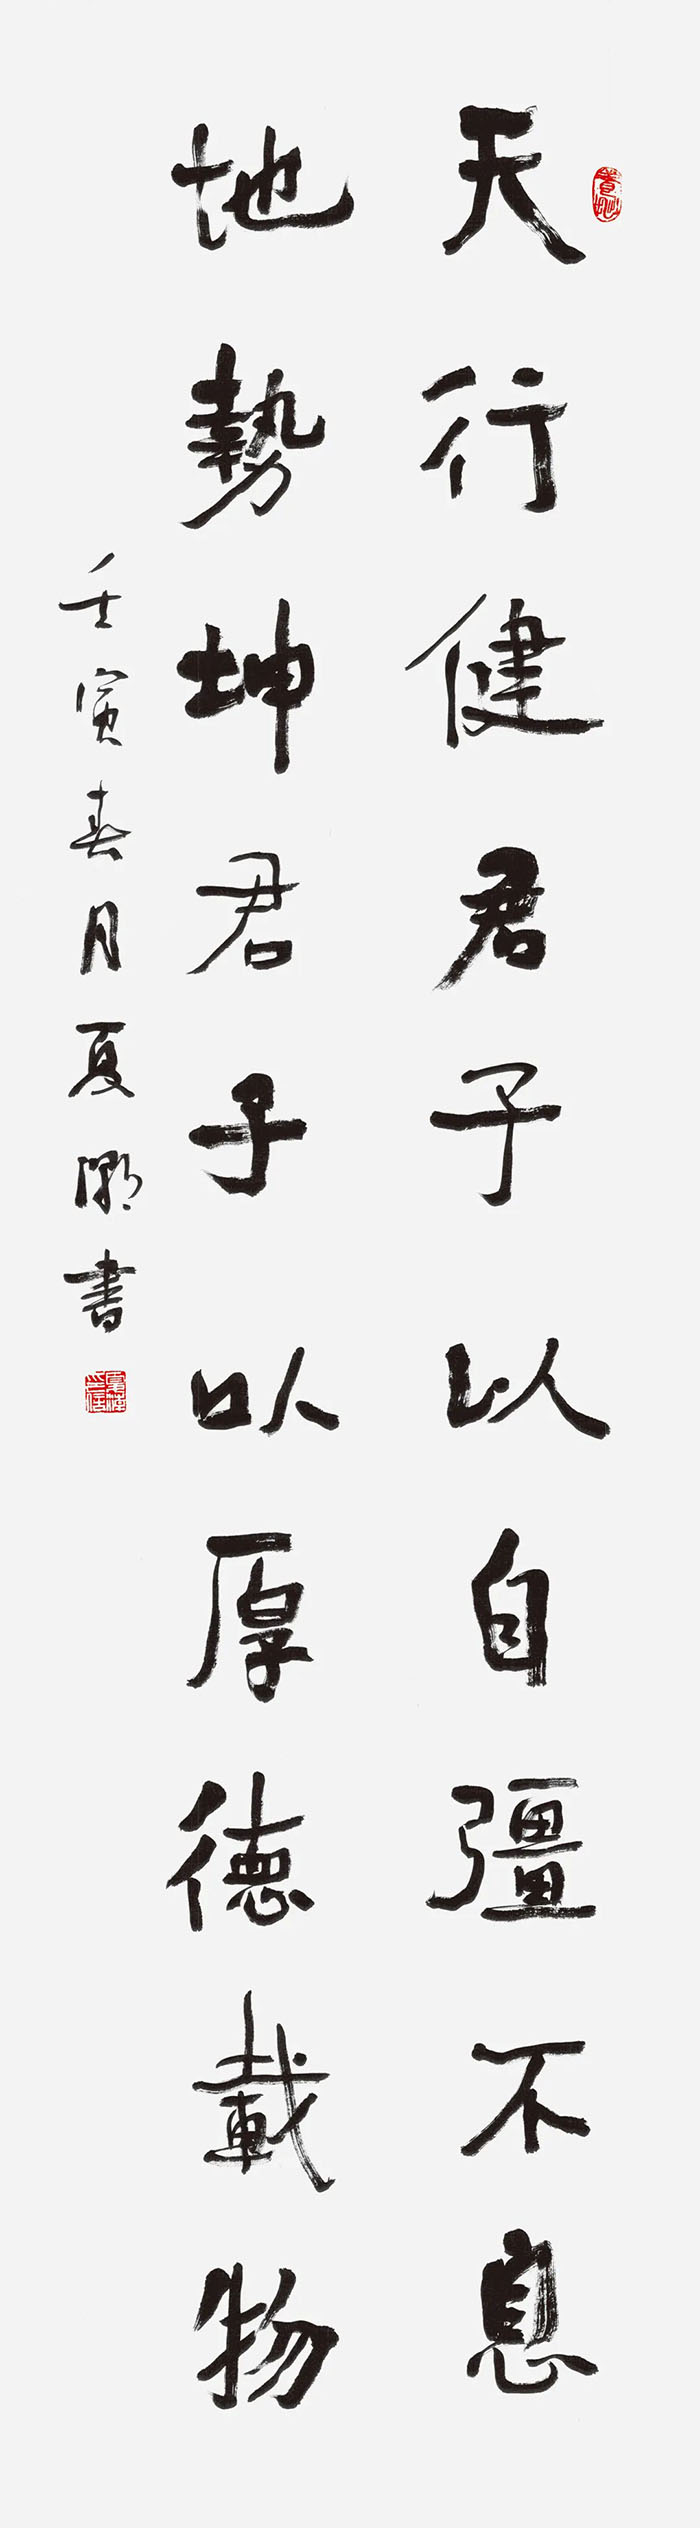 天行健君子以自彊不息
地勢坤君子以厚德載物
壬寅春月夏書